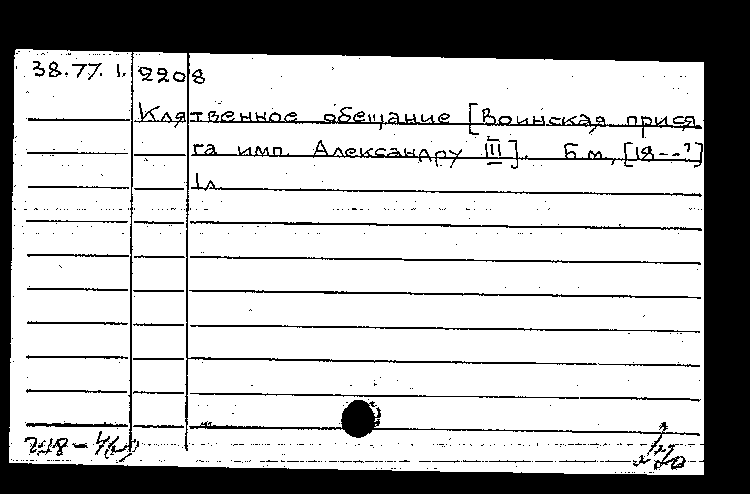 38.77.1. 2208
Клятвенное обещание [Воинская прися
га имп. Александру III]. Б.м., [18--?]
1л.